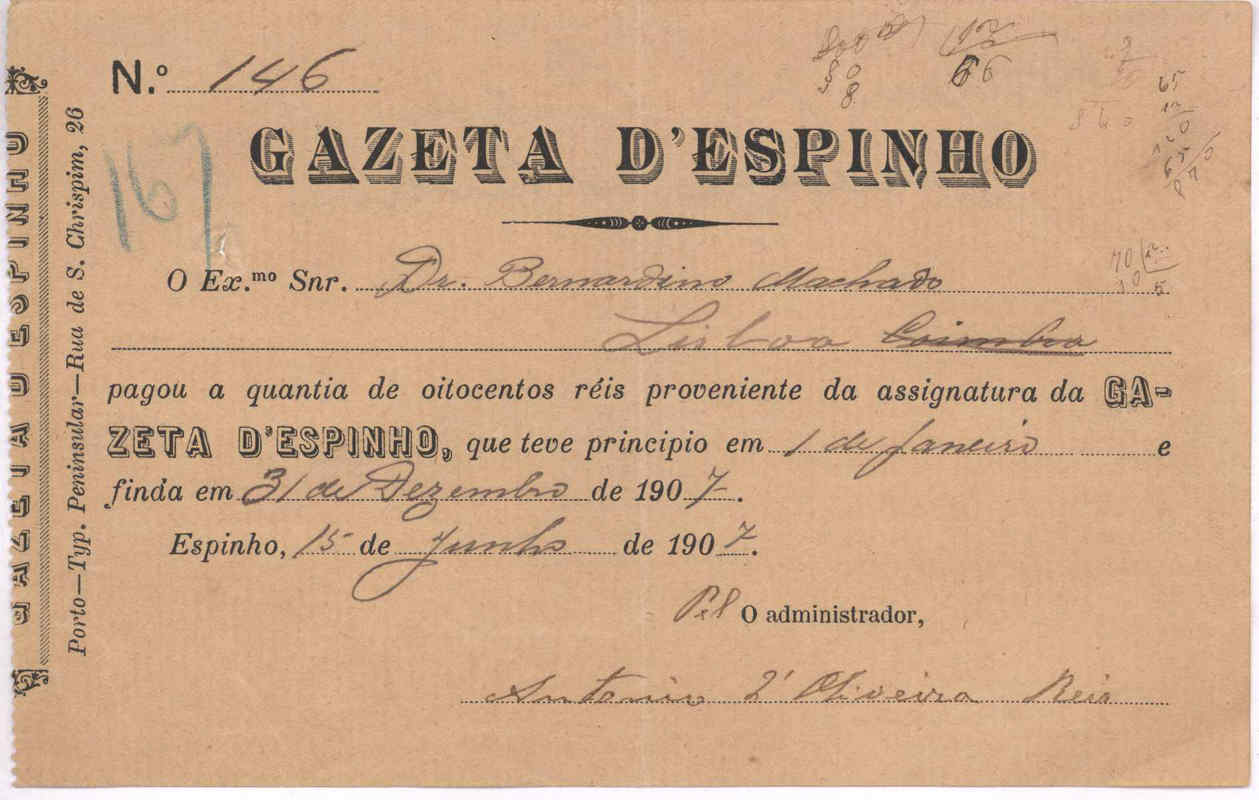 N.º 146
167
GAZETA D'ESPINHO
O Ex.mo Snr. Dr. Bernardino Machado
Lisboa Coimbra
pagou a quantia de oitocentos réis proveniente da assignatura da GA-
ZETA D'ESPINHO, que teve principio em 1 de Janeiro e
finda em 31 de Dezembro de 1907.
Espinho, 15 de Junho de 1907.
O administrador,
Antonio d'Oliveira Reis
GAZETA D'ESPINHO
Porto—Typ. Peninsular—Rua de S. Chrispim, 26